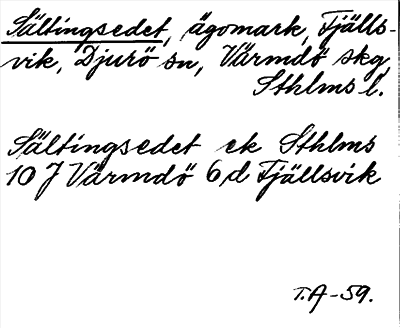 Sältingsedet, ägomark, Fjälls-
vik, Djurö sn, Värmdö skg,
Sthlms l.
Sältingsedet ek Sthlms
10 J Värmdö 6 d Fjällsvik
T.A-59.